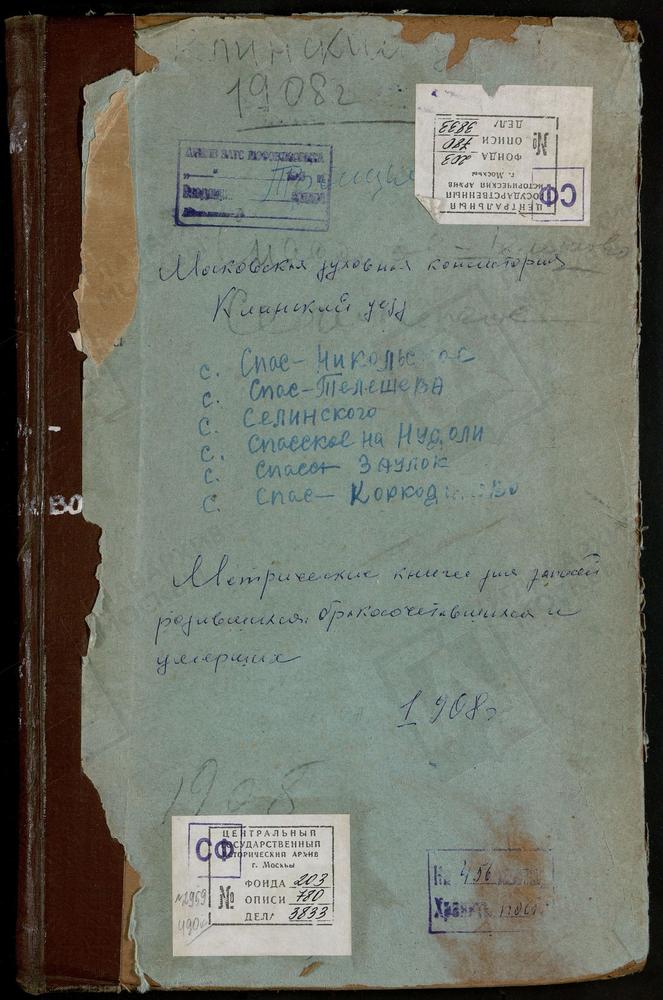 Клинский у
1908 г
ЦЕНТРАЛЬНЫЙ
ГОСУДАРСТВЕННЫЙ
ИСТОРИЧЕСКИЙ АРХИВ
г. Москвы
СФ
ФОНДА 203
№ ОПИСИ 780
ДЕЛА 3833
Московская духовная консистория
Клинский уезд
с. Спас-Никольское
с. Спас-Телешева
с. Селинского
с. Спасское на Нудоли
с. Спасск Заулок
с. Спас-Коркодиново
ОВО
Метрические книги для записей
родившихся, бракосочетавшихся и
умерших
1908г
1908
ЦЕНТРАЛЬНЫЙ
ГОСУДАРСТВЕННЫЙ
ИСТОРИЧЕСКИЙ АРХИВ
г. Москвы
СФ
ФОНДА 203
№ ОПИСИ 780
ДЕЛА 3833
№2959
456
Хранить